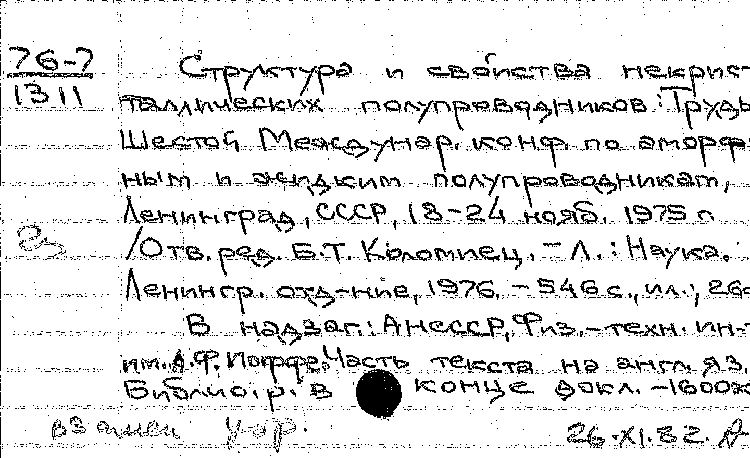 76-7
1311
Структура и свойства некрис-
таллических полупроводников: Труды
Шестой Междунар. конф. по аморф-
ным и жидким полупроводникам,
Ленинград, СССР, 18-24 нояб. 1975 г.
/Отв. ред. Б.Т. Коломиец. - Л.: Наука.
Ленингр. отд-ние, 1976. - 546 с., ил.; 26
В надзаг.: АН СССР, Физ.-техн. ин-т
им. А.Ф. Иоффе. Часть текста на англ. яз.
Библиогр. в конце докл. - 1600
взамен
26.XI.82.